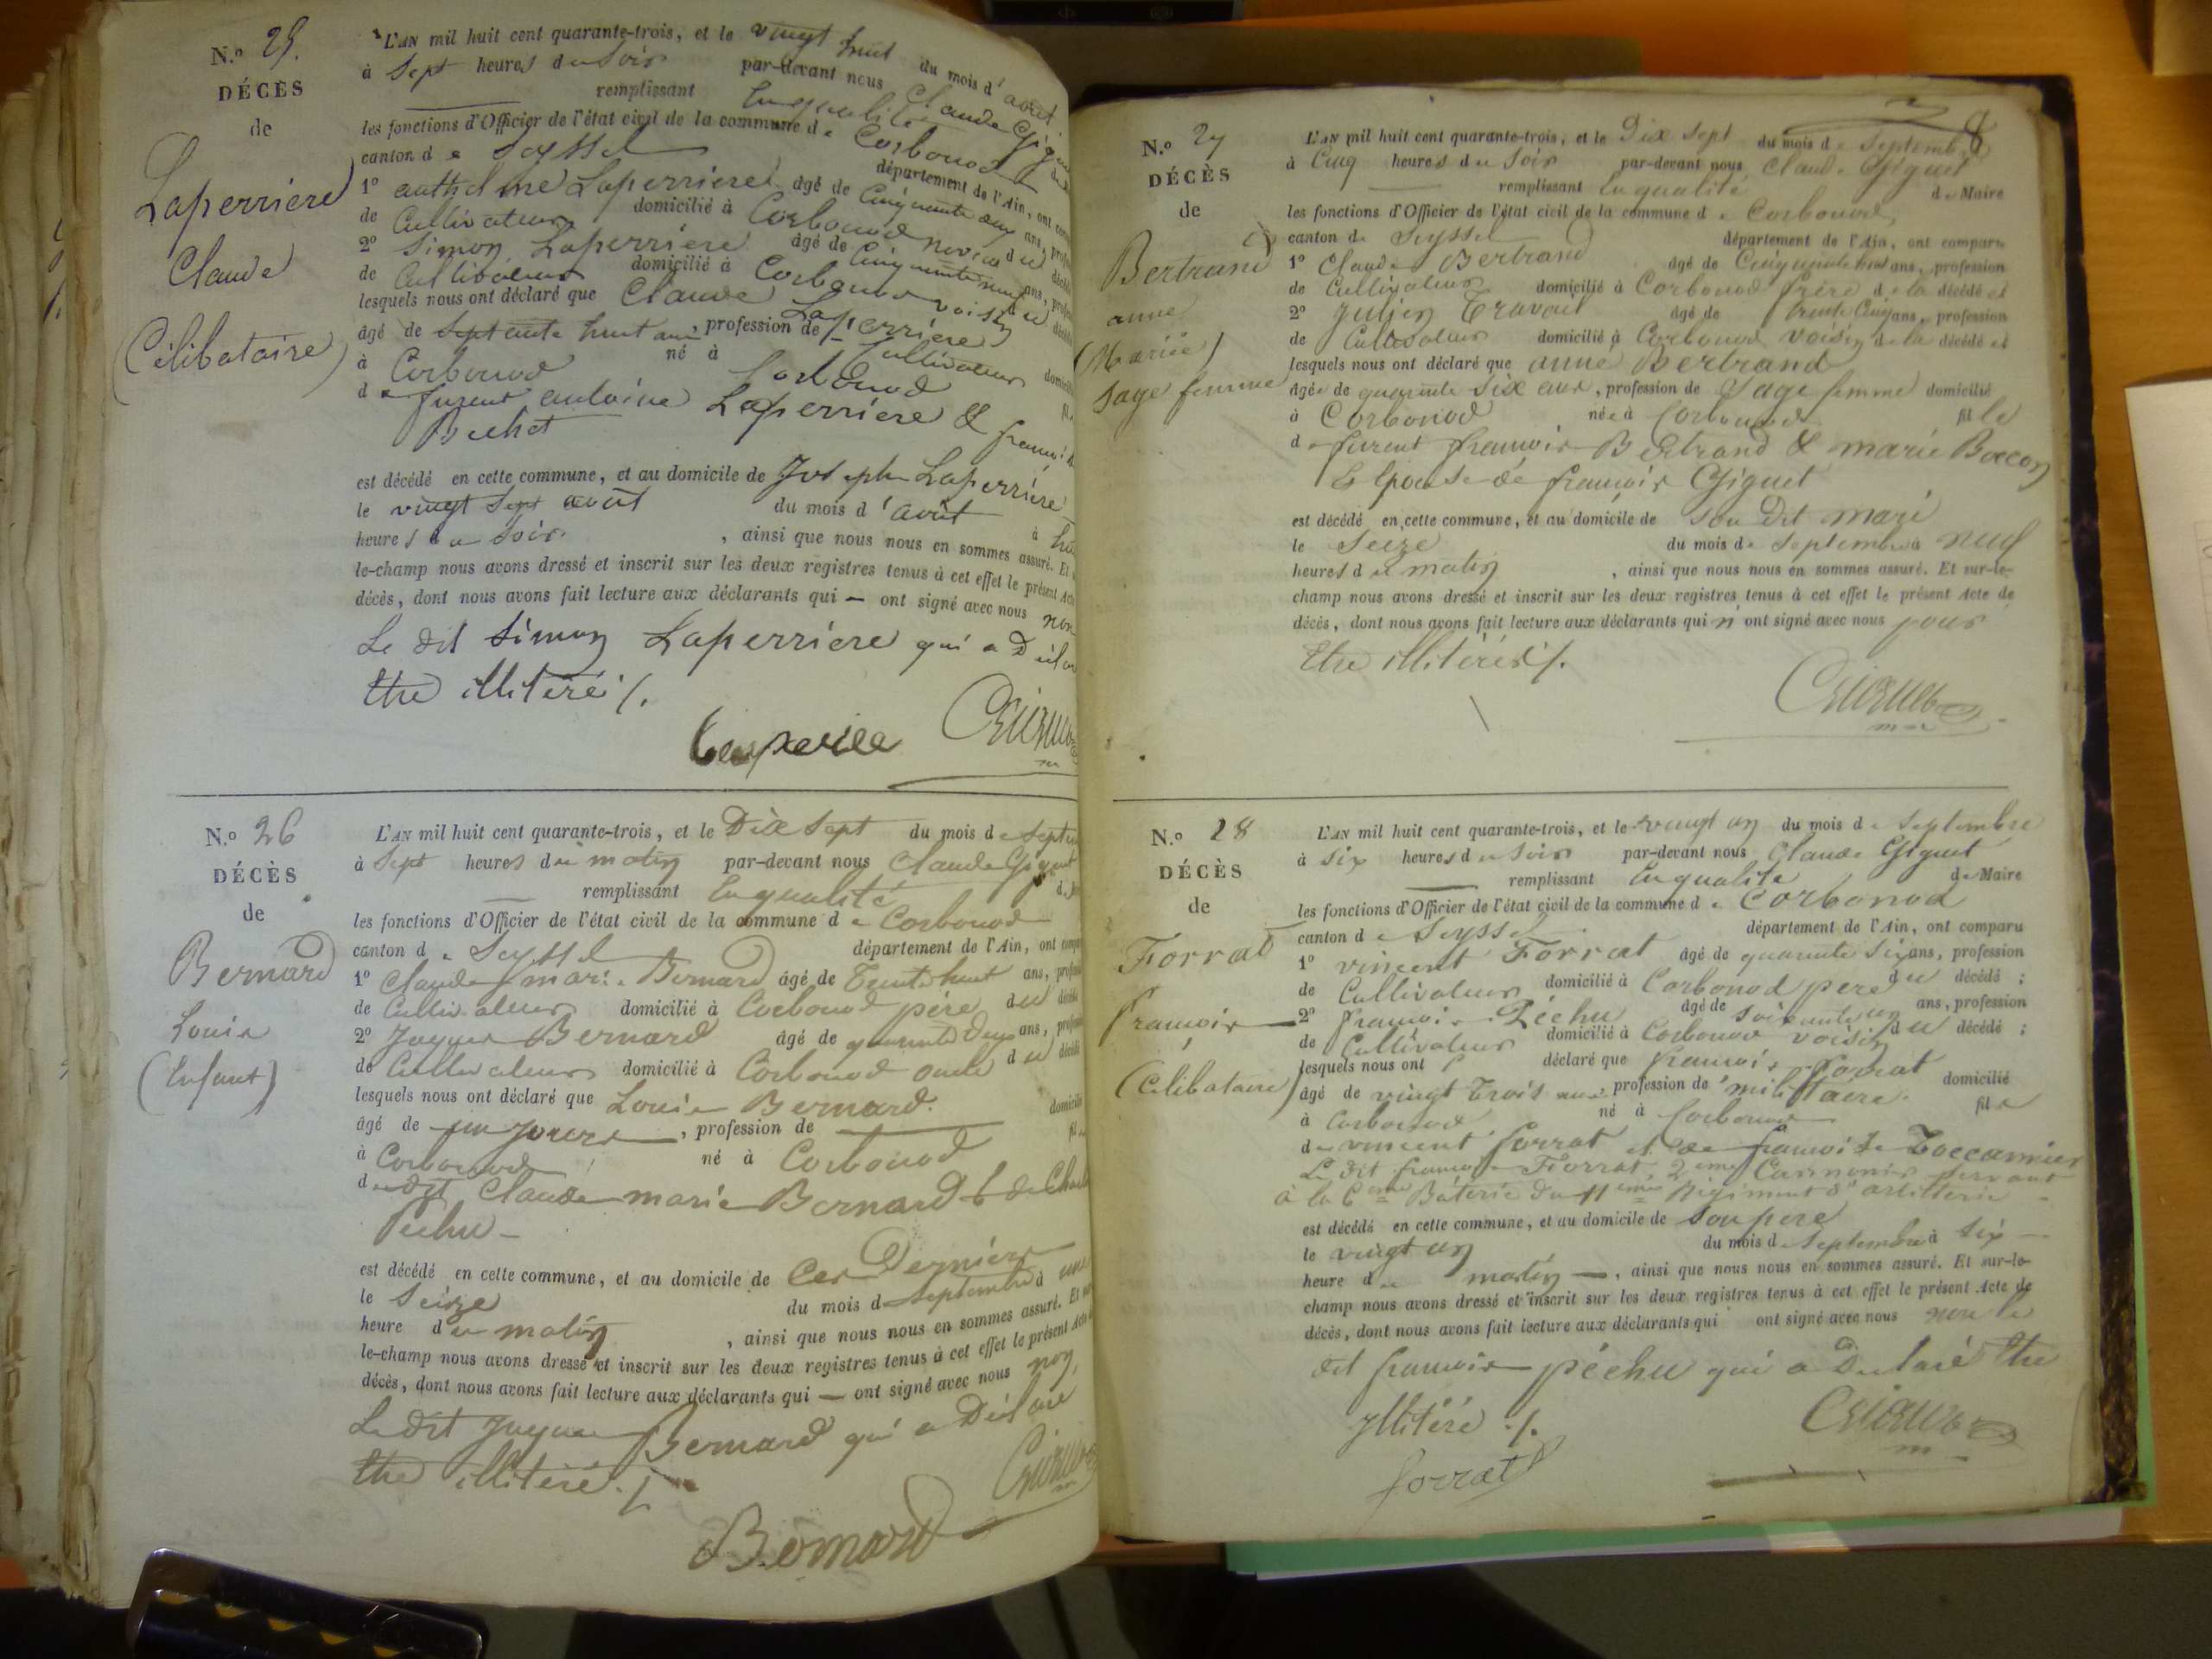 N.o 25.
DÉCÈS
de
Laperriere
Claude
(Célibataire)
L'AN mil huit cent quarante-trois, et le vingt huit du mois d'août
à Sept heures du Soir par-devant nous Claude Giguet
remplissant En qualité
les fonctions d'Officier de l'état civil de la commune de Corbonod
canton de Seyssel département de l'Ain, ont
1o anthelme Laperriere âgé de Cinquante deux ans,
de Cultivateur domicilié à Corbonod neveu du
2o Simon Laperriere âgé de Cinquante neuf ans,
de Cultivateur domicilié à Corbonod voisin du
lesquels nous ont déclaré que Claude Laperriere
âgé de Septante huit ans, profession de Cultivateur
à Corbonod né à Corbonod
de furent antoine Laperriere &
Béchet
est décédé en cette commune, et au domicile de Joseph Laperriere
le vingt Sept août du mois d'août à
heures du Soir, ainsi que nous nous en sommes assuré. Et
le-champ nous avons dressé et inscrit sur les deux registres tenus à cet effet le présent Acte
décès, dont nous avons fait lecture aux déclarants qui — ont signé avec nous non
Le dit Simon Laperriere qui a
être illitéré ./.
N.o 26
DÉCÈS
de
Bernard
Louis
(Enfant)
L'AN mil huit cent quarante-trois, et le Dix Sept du mois de
à Sept heures du matin par-devant nous Claude Giguet
remplissant En qualité
les fonctions d'Officier de l'état civil de la commune de Corbonod
canton de Seyssel département de l'Ain, ont
1o Claude marie Bernard âgé de Trente huit ans,
de Cultivateur domicilié à Corbonod père du
2o Jaques Bernard âgé de quarante Deux ans,
de Cultivateur domicilié à Corbonod oncle du
lesquels nous ont déclaré que Louis Bernard.
âgé de jours, profession de
à Corbonod né à Corbonod
du dit Claude marie Bernard & de
Péchu —
est décédé en cette commune, et au domicile de Ces Derniers
le Seize du mois de Septembre à une
heure du matin, ainsi que nous nous en sommes assuré. Et
le-champ nous avons dressé et inscrit sur les deux registres tenus à cet effet le présent Acte
décès, dont nous avons fait lecture aux déclarants qui — ont signé avec nous non
Le dit Jaques Bernard qui a Déclaré
être illitéré ./.
Bernard
N.o 27
DÉCÈS
de
Bertrand
anne
(Mariée)
Sage femme
L'AN mil huit cent quarante-trois, et le Dix Sept du mois de Septembre
à Cinq heures du Soir par-devant nous Claude Giguet
remplissant En qualité de Maire
les fonctions d'Officier de l'état civil de la commune de Corbonod
canton de Seyssel département de l'Ain, ont comparu
1o Claude Bertrand âgé de Cinquante huit ans, profession
de Cultivateur domicilié à Corbonod frère de la décédé et
2o Julien Travail âgé de trente Cinq ans, profession
de Cultivateur domicilié à Corbonod voisin de la décédé et
lesquels nous ont déclaré que anne Bertrand
âgée de quarante Six ans, profession de Sage femme domicilié
à Corbonod née à Corbonod fille
de furent françois Bertrand & marie Bacon
Epouse de françois Giguet
est décédé en cette commune, et au domicile de Son Dit mari
le Seize du mois de Septembre à neuf
heures du matin, ainsi que nous nous en sommes assuré. Et sur-le-
champ nous avons dressé et inscrit sur les deux registres tenus à cet effet le présent Acte de
décès, dont nous avons fait lecture aux déclarants qui n'ont signé avec nous pour
être illitérés ./.
N.o 28
DÉCÈS
de
Forrat
françois
(Célibataire)
L'AN mil huit cent quarante-trois, et le vingt un du mois de Septembre
à Six heures du Soir par-devant nous Claude Giguet
remplissant En qualité de Maire
les fonctions d'Officier de l'état civil de la commune de Corbonod
canton de Seyssel département de l'Ain, ont comparu
1o vincent Forrat âgé de quarante Six ans, profession
de Cultivateur domicilié à Corbonod père du décédé ;
2o françois Péchu âgé de Soixante un ans, profession
de Cultivateur domicilié à Corbonod voisin du décédé ;
lesquels nous ont déclaré que françois Forrat
âgé de vingt Trois ans, profession de militaire. domicilié
à Corbonod né à Corbonod fils
de vincent forrat et de françoise Toccannier
Le dit françois Forrat 2eme Cannonier servant
à la 6eme Baterie du 11eme Régiment d'artillerie
est décédé en cette commune, et au domicile de Son père
le vingt un du mois de Septembre à Six
heure du matin —, ainsi que nous nous en sommes assuré. Et sur-le-
champ nous avons dressé et inscrit sur les deux registres tenus à cet effet le présent Acte de
décès, dont nous avons fait lecture aux déclarants qui ont signé avec nous non le
dit françois péchu qui a Déclaré être
illitéré ./.
forrat